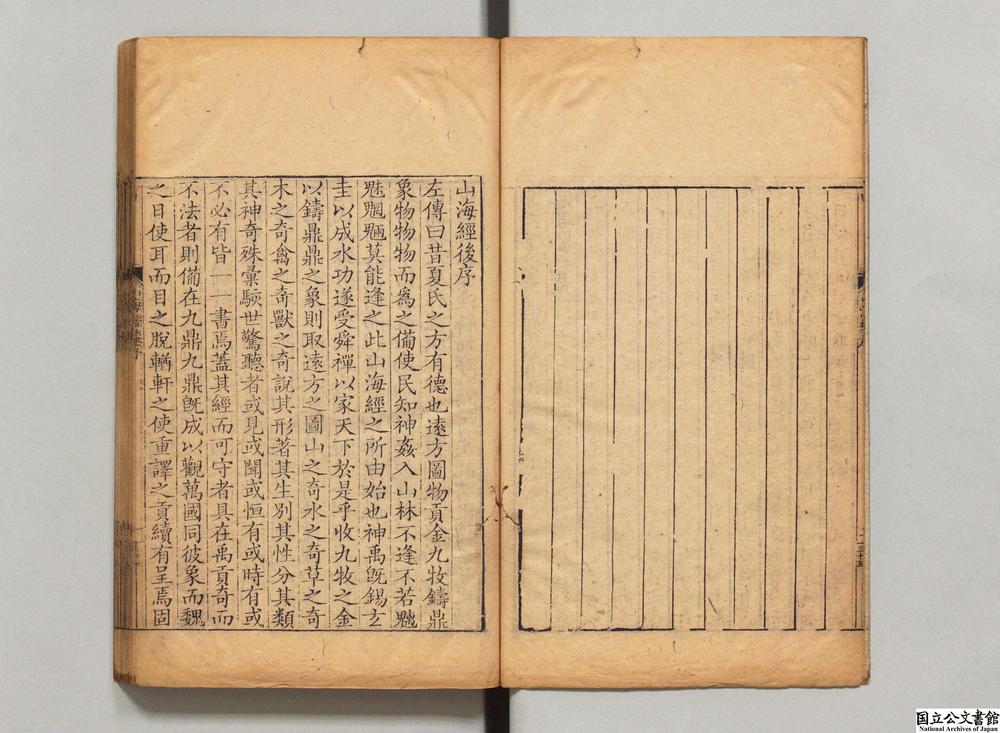 山海經後序
左傳曰昔夏氏之方有德也遠方圖物貢金九牧鑄鼎
象物物物而爲之備使民知神姦入山林不逢不若魑
魅魍魎莫能逢之此山海經之所由始也神禹旣錫玄
圭以成水功遂受舜禪以家天下於是乎收九牧之金
以鑄鼎鼎之象則取遠方之圖山之奇水之奇草之奇
木之奇禽之奇獸之奇說其形著其生別其性分其類
其神奇殊彙駭世驚聽者或見或聞或恒有或時有或
不必有皆一一書焉蓋其經而可守者具在禹貢奇而
不法者則備在九鼎九鼎旣成以觀萬國同彼象而魏
之日使耳而目之脫輶軒之使重譯之貢續有呈焉固
国立公文書館
National Archives of Japan